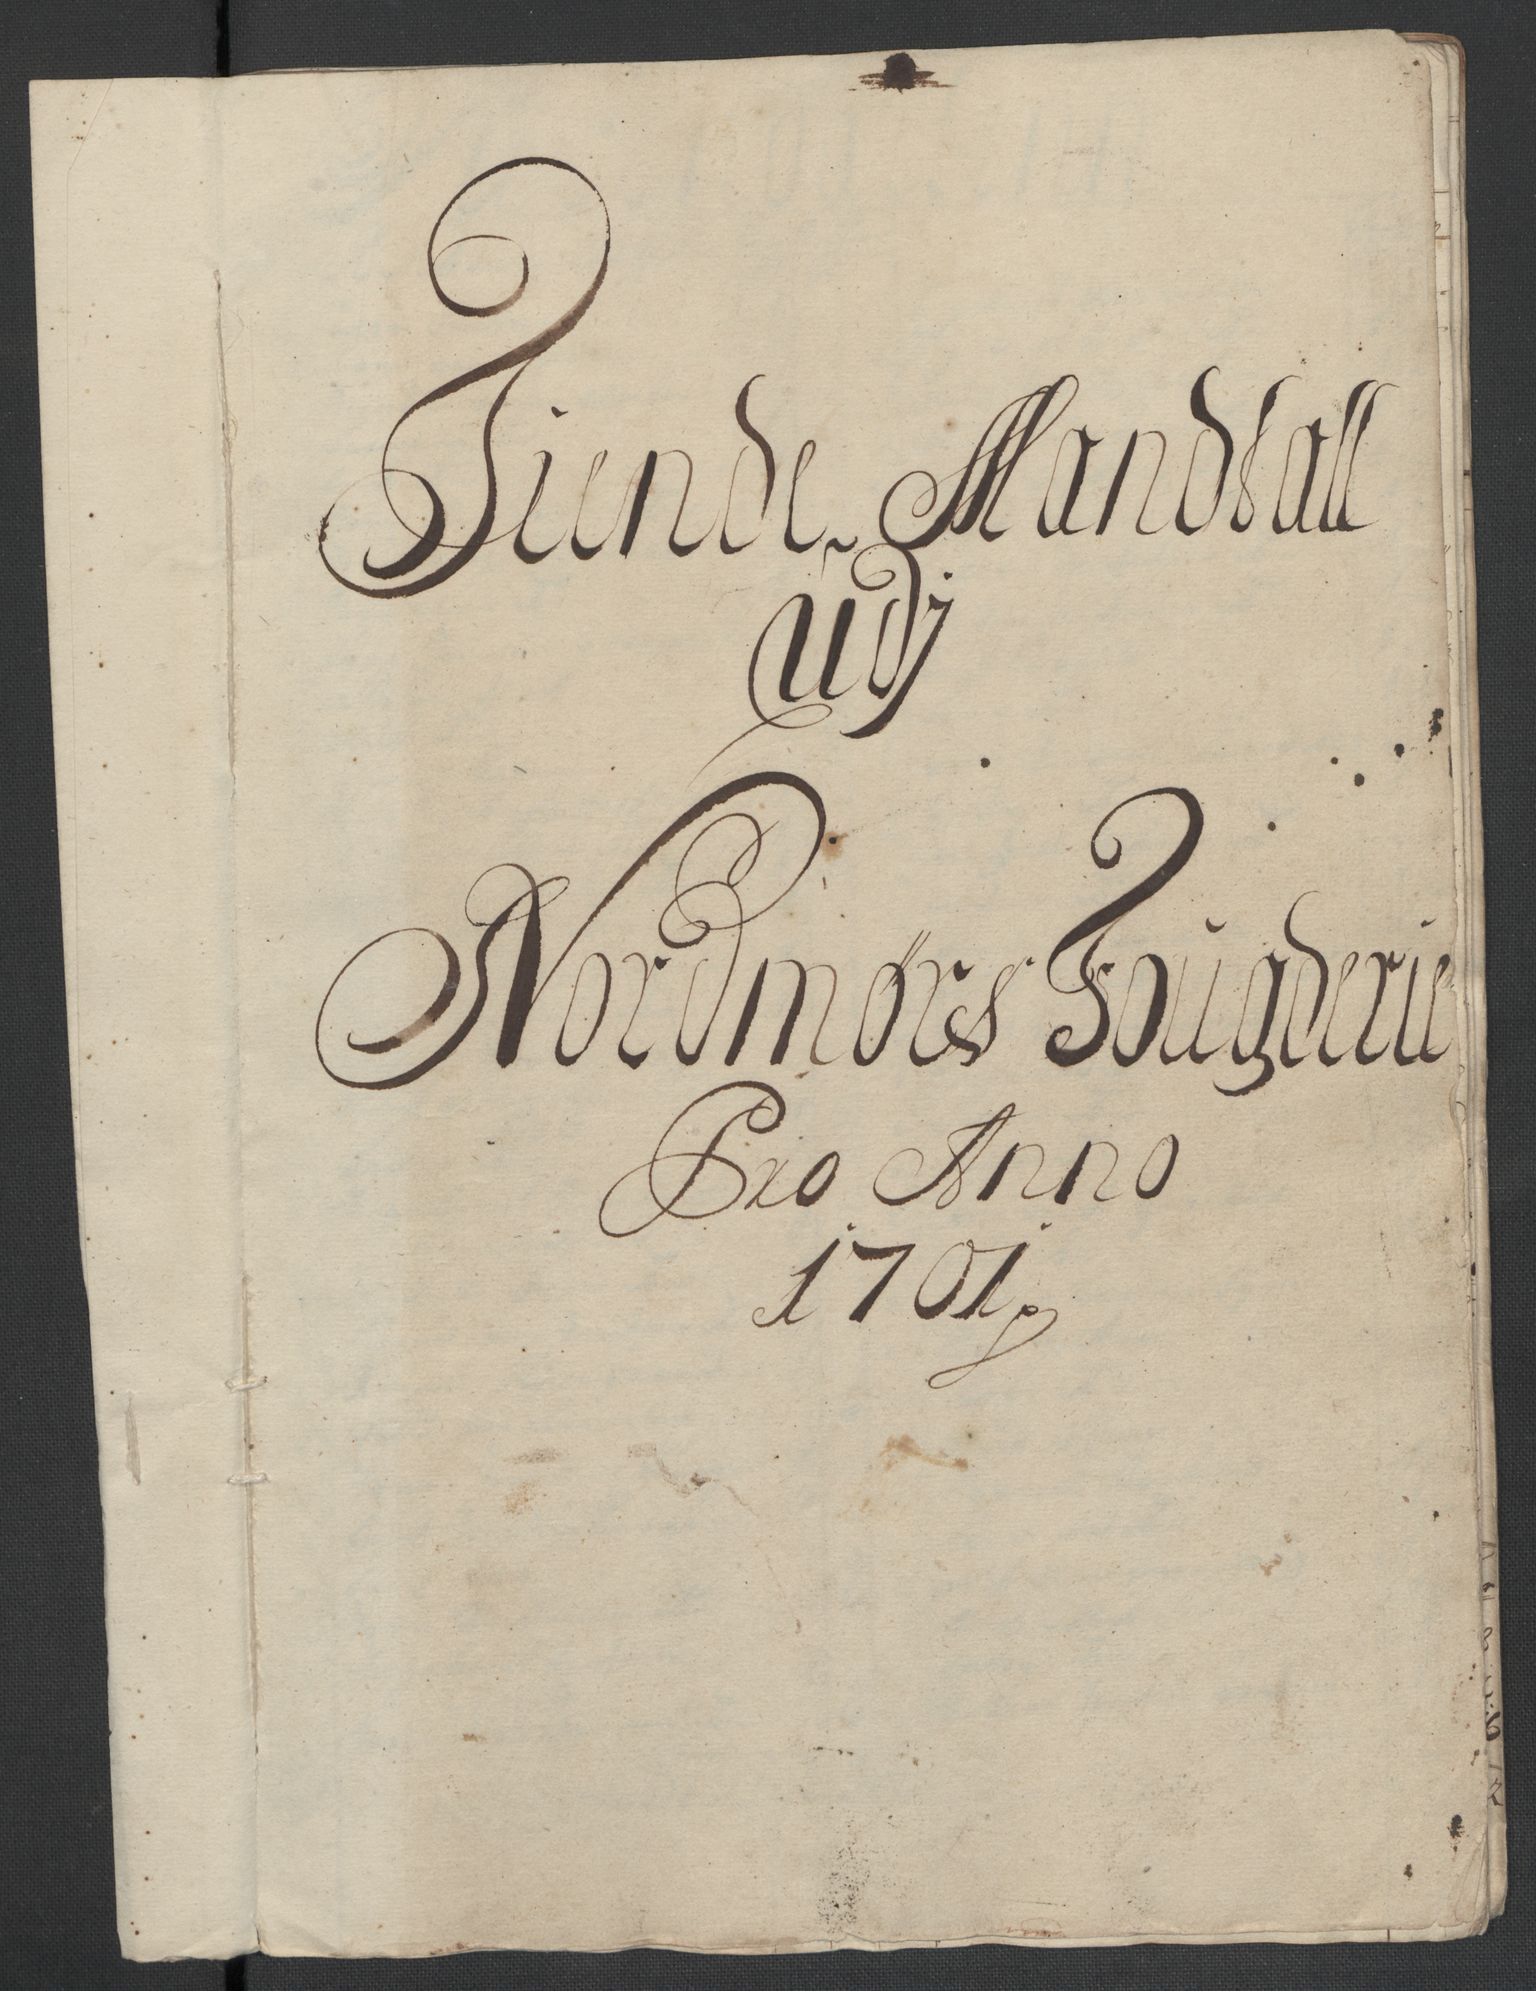 Tiende Mandtall
udj
Nordmørs Fougderie
Pro Anno
1701